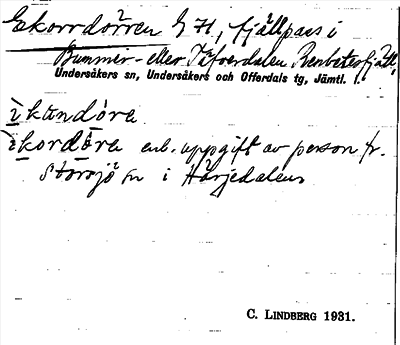 Ekorrdörren G H, fjällpass i
Bummer- eller Tåfverdalen Renbetesfjäll,
Undersåkers sn, Undersåkers och Offerdals tg, Jämtl. l.
ìkandòra
ìkordòra enl. uppgift av person fr.
Storsjö sn i Härjedalen
C. LINDBERG 1931.